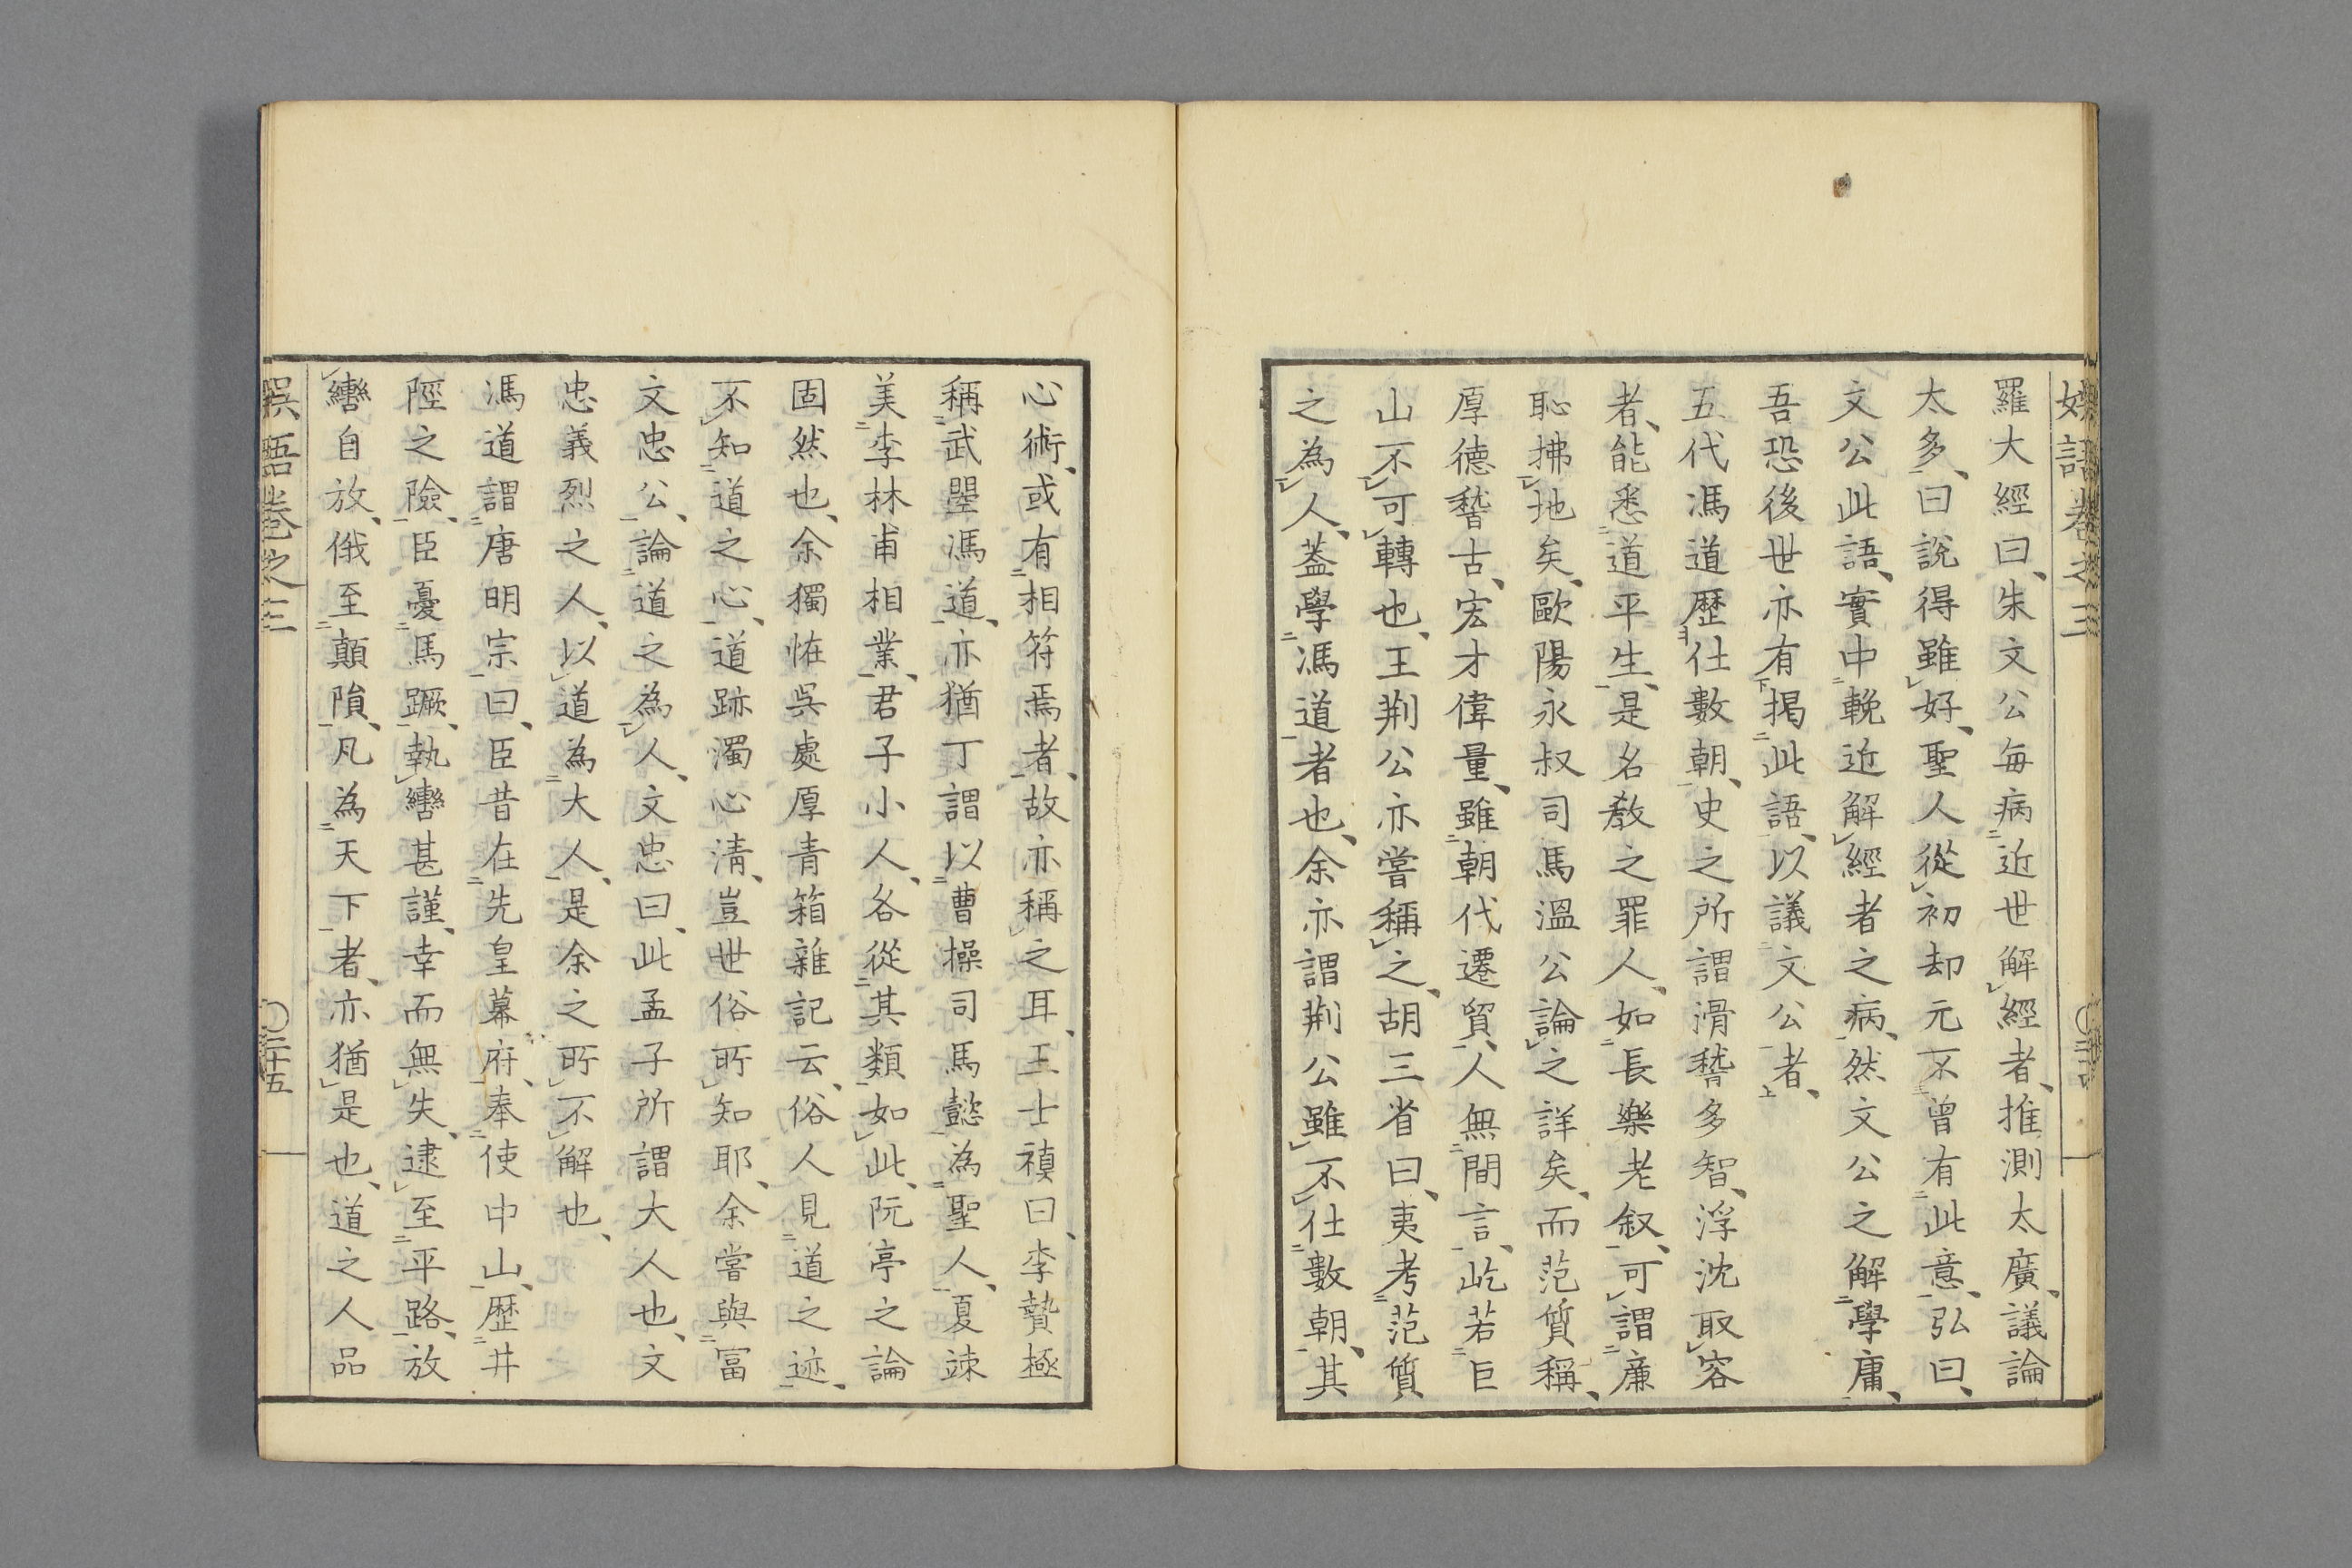 娯語卷之三
羅大經曰、朱文公每病近世解經者、推測太廣、議論
太多、曰說得雖好、聖人從初却元不曾有此意、弘曰、
文公此語、實中輓近解經者之病、然文公之解學庸、
吾恐後世亦有揭此語、以議文公者、
五代馮道歷仕數朝、史之所謂滑稽多智、浮沈取容
者、能悉道平生、是名教之罪人、如長樂老叙、可謂廉
恥拂地矣、歐陽永叔司馬溫公論之詳矣、而范質稱、
厚德稽古、宏才偉量、雖朝代遷貿、人無間言、屹若巨
山不可轉也、王荆公亦嘗稱之、胡三省曰、夷考范質
之為人、蓋學馮道者也、余亦謂荆公雖不仕數朝、其
心術、或有相符焉者、故亦稱之耳、王士禛曰、李贄極
稱武曌馮道、亦猶丁謂以曹操司馬懿為聖人、夏竦
美李林甫相業、君子小人、各從其類如此、阮亭之論
固然也、余獨恠吳處厚青箱雜記云、俗人見道之迹、
不知道之心、道跡濁心淸、豈世俗所知耶、余嘗與富
文忠公、論道之為人、文忠曰、此孟子所謂大人也、文
忠義烈之人、以道為大人、是余之所不解也、
馮道謂唐明宗曰、臣昔在先皇幕府、奉使中山、歷井
陘之險、臣憂馬蹶、執轡甚謹、幸而無失、逮至平路、放
轡自放、俄至顛隕、凡為天下者、亦猶是也、道之人品
娯語卷之三
〇二十五